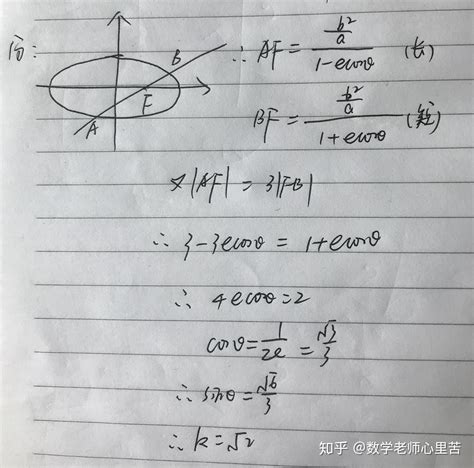 何:
B
F
A
∴ AF = \frac{\frac{b^2}{a}}{1-ecosθ} (长)
BF = \frac{\frac{b^2}{a}}{1+ecosθ} (短)
又|AF| = 3|FB|
∴ 3-3ecosθ = 1+ecosθ
∴ 4ecosθ=2
cosθ=\frac{1}{2e} = \frac{√3}{3}
∴ sinθ=\frac{√6}{3}
∴ k=√2
知乎 @数学老师心里苦